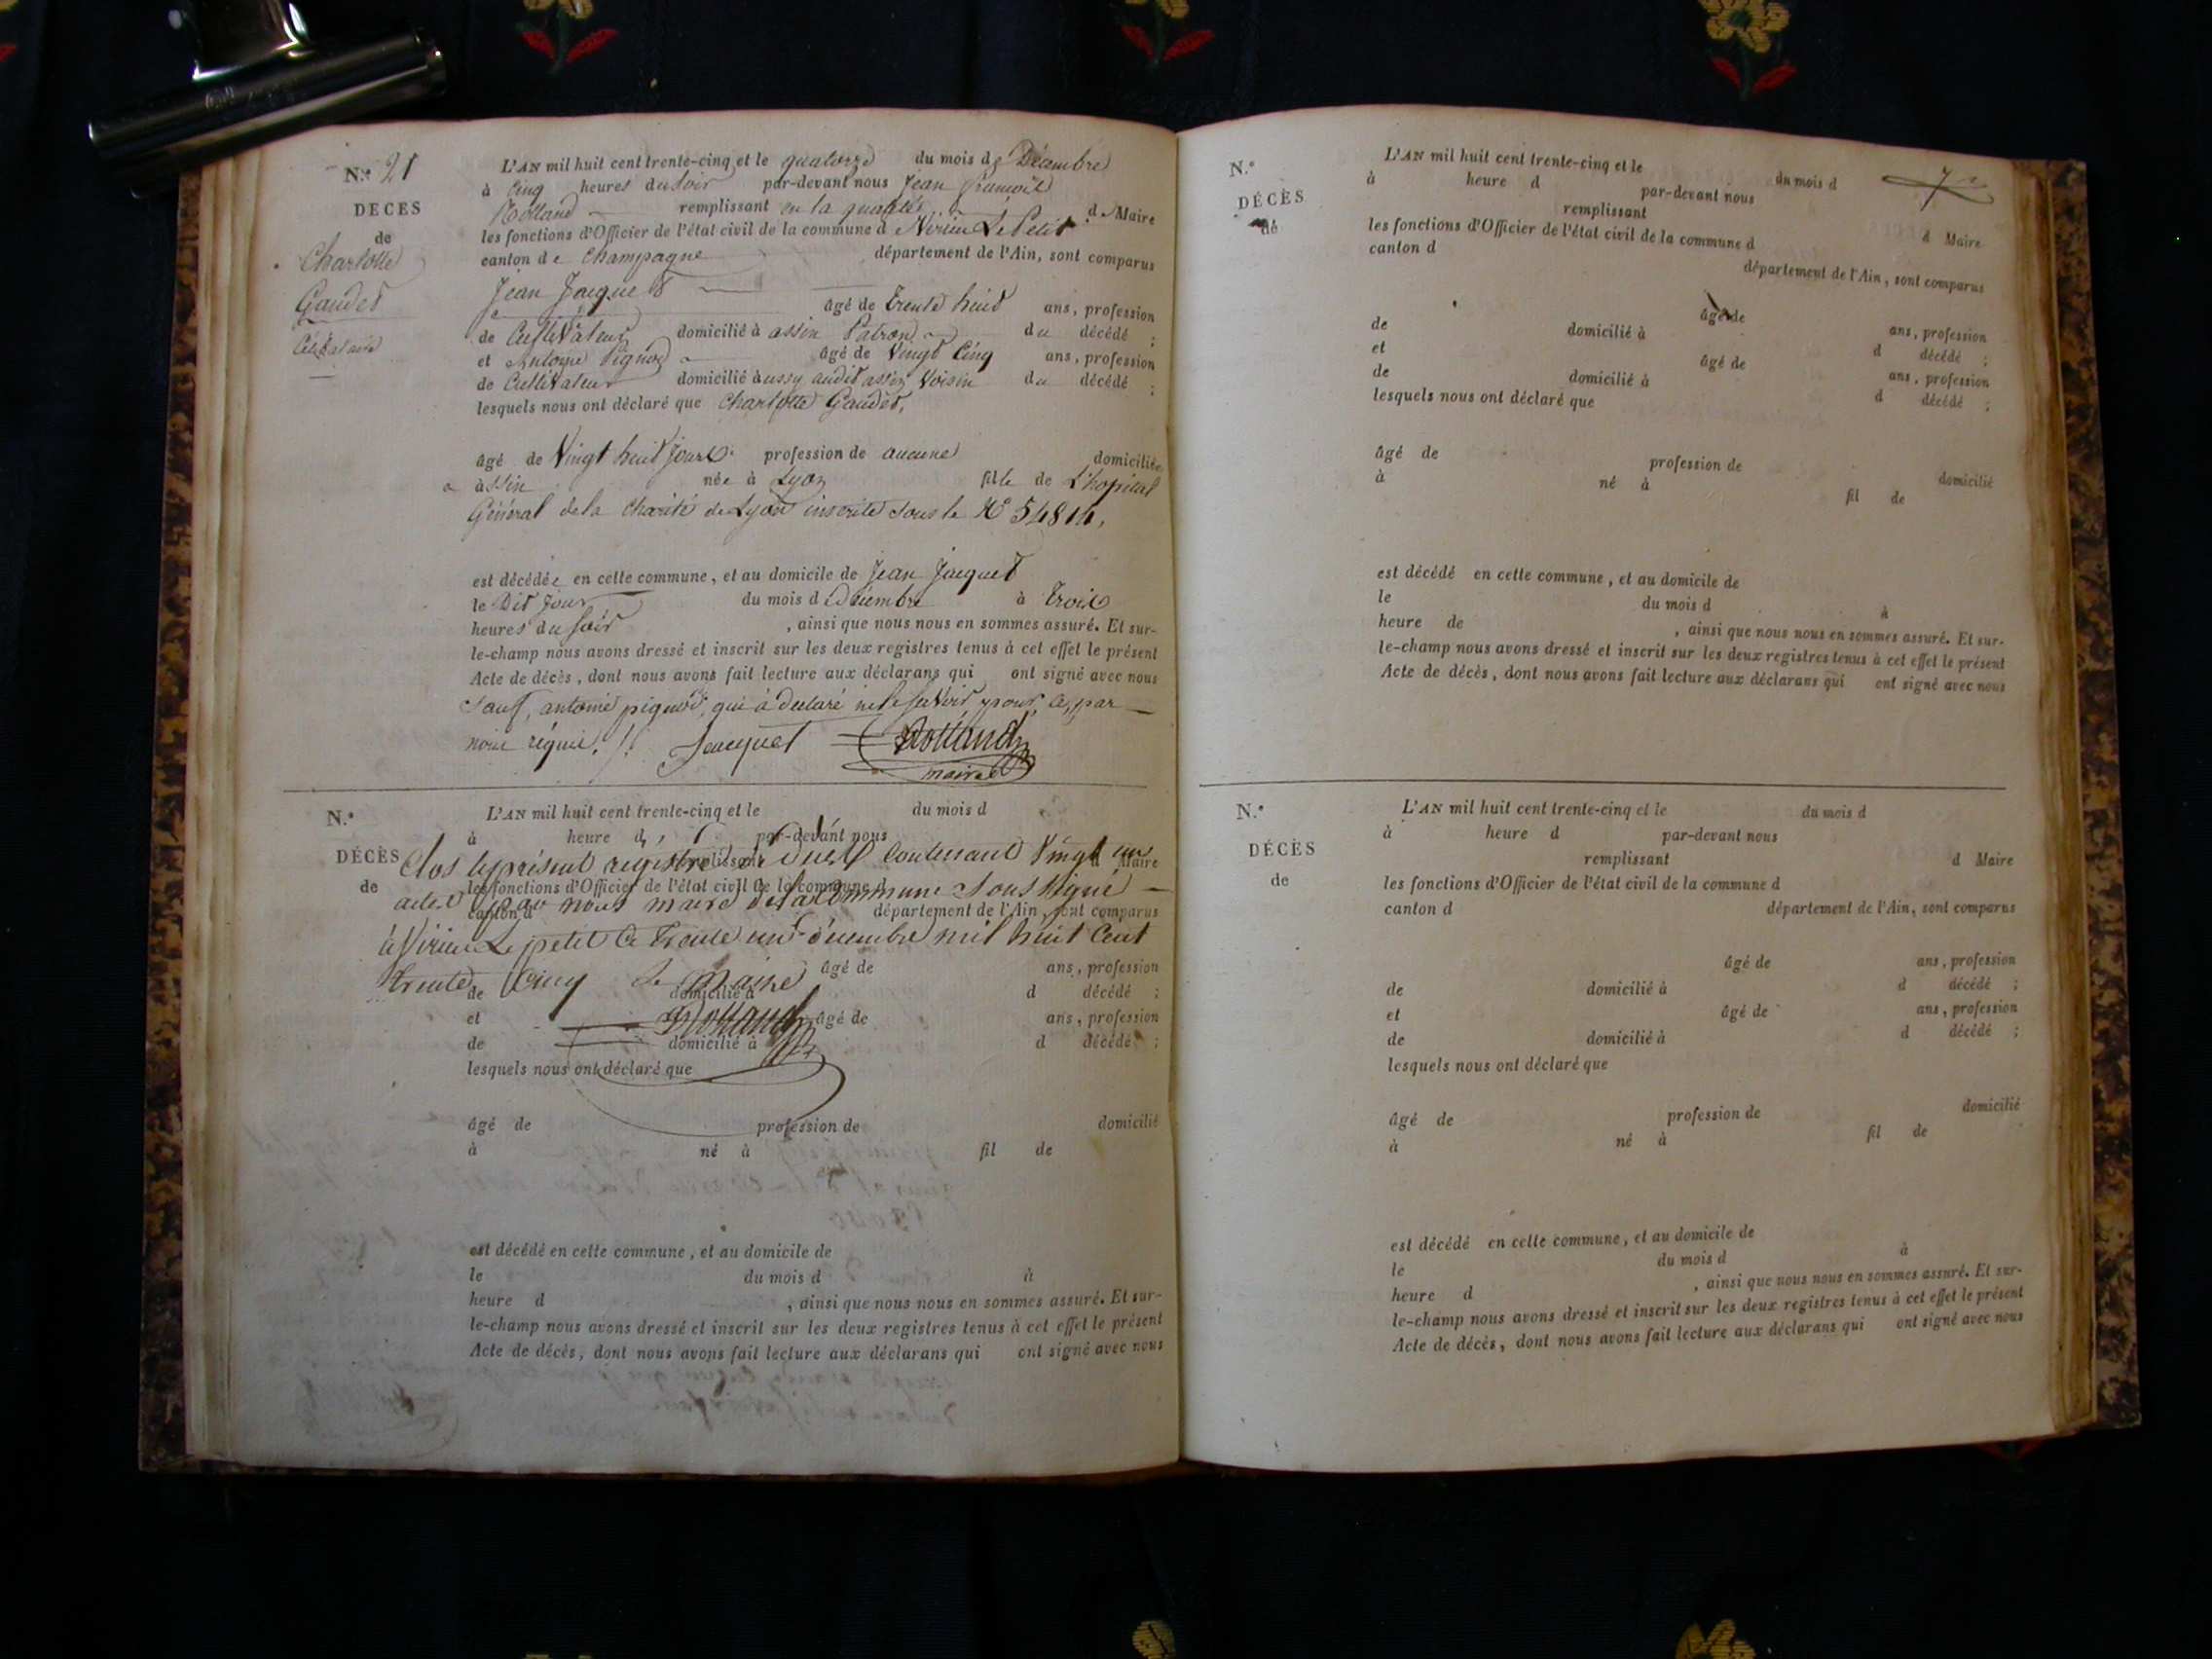 N.° 21
DECES
de
Charlotte
Gaudet
Célibataire
L'AN mil huit cent trente-cinq et le quatorze du mois de Décembre
à cinq heures du soir par-devant nous Jean françois
Rolland remplissant en la qualité de Maire
les fonctions d'Officier de l'état civil de la commune de Virieu Le Petit
canton de Champagne département de l'Ain, sont comparus
Jean Jacquet
âgé de trente huit ans, profession
de Cultivateur domicilié à assin Patron du décédé ;
et Antoine Pignod âgé de Vingt Cinq ans, profession
de Cultivateur domicilié aussy audit assin Voisin du décédé ;
lesquels nous ont déclaré que Charlotte Gaudet,
âgé de Vingt huit Jours profession de aucune domiciliée
à assin née à Lyon fille de L'hopital
Général de la Charité de Lyon inscrite sous le N°
est décédée en cette commune, et au domicile de Jean Jacquet
le Dit Jour du mois de Décembre à trois
heures du soir , ainsi que nous nous en sommes assuré. Et sur-
le-champ nous avons dressé et inscrit sur les deux registres tenus à cet effet le présent
Acte de décès, dont nous avons fait lecture aux déclarans qui ont signé avec nous
Sauf, antoine pignod, qui à déclaré ne le savoir, pour ce, par
nous réquis. Jacquet Rolland
maire
N.°
DÉCÈS
de
L'AN mil huit cent trente-cinq et le du mois d
à heure d par-devant nous
remplissant d Maire
Clos le présent registre contenant Vingt un
les fonctions d'Officier de l'état civil de la commune d
actes par nous maire de la commune Soussigné
canton d département de l'Ain, sont comparus
à Virieu Le petit Ce trente un décembre mil huit Cent
trente Cinq Le Maire
âgé de ans, profession
de domicilié à d décédé ;
Rolland
et âgé de ans, profession
de domicilié à d décédé ;
lesquels nous ont déclaré que
âgé de profession de domicilié
à né à fil de
est décédé en cette commune, et au domicile de
le du mois d à
heure d , ainsi que nous nous en sommes assuré. Et sur-
le-champ nous avons dressé et inscrit sur les deux registres tenus à cet effet le présent
Acte de décès, dont nous avons fait lecture aux déclarans qui ont signé avec nous
N.°
DÉCÈS
de
L'AN mil huit cent trente-cinq et le du mois d
à heure d par-devant nous
remplissant d Maire
les fonctions d'Officier de l'état civil de la commune d
canton d département de l'Ain, sont comparus
âgé de ans, profession
de domicilié à d décédé ;
et âgé de ans, profession
de domicilié à d décédé ;
lesquels nous ont déclaré que
âgé de profession de domicilié
à né à fil de
est décédé en cette commune, et au domicile de
le du mois d à
heure de , ainsi que nous nous en sommes assuré. Et sur-
le-champ nous avons dressé et inscrit sur les deux registres tenus à cet effet le présent
Acte de décès, dont nous avons fait lecture aux déclarans qui ont signé avec nous
N.°
DÉCÈS
de
L'AN mil huit cent trente-cinq et le du mois d
à heure d par-devant nous
remplissant d Maire
les fonctions d'Officier de l'état civil de la commune d
canton d département de l'Ain, sont comparus
âgé de ans, profession
de domicilié à d décédé ;
et âgé de ans, profession
de domicilié à d décédé ;
lesquels nous ont déclaré que
âgé de profession de domicilié
à né à fil de
est décédé en cette commune, et au domicile de
le du mois d à
heure d , ainsi que nous nous en sommes assuré. Et sur-
le-champ nous avons dressé et inscrit sur les deux registres tenus à cet effet le présent
Acte de décès, dont nous avons fait lecture aux déclarans qui ont signé avec nous